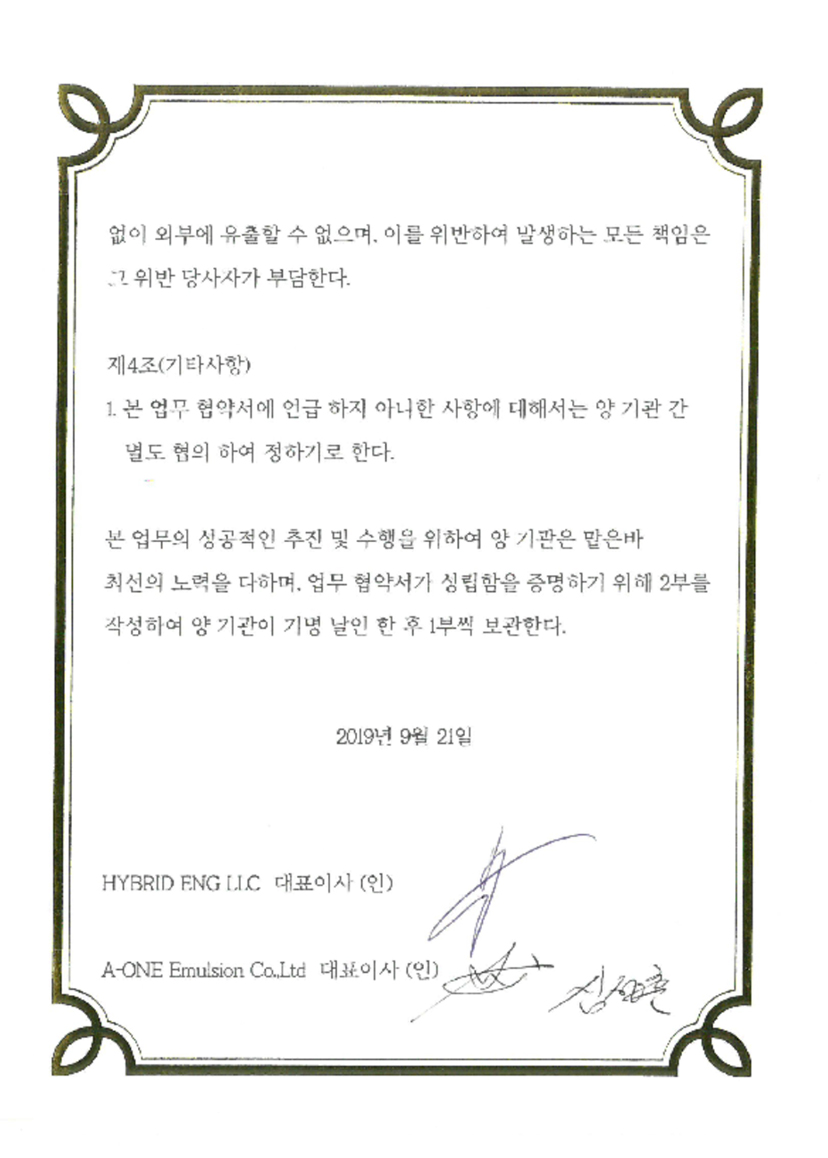 없이 외부에 유출할 수 없으며, 이를 위반하여 발생하는 모든 책임은
그 위반 당사자가 부담한다.
제4조(기타사항)
1. 본 업무 협약서에 언급 하지 아니한 사항에 대해서는 양 기관 간
별도 협의 하여 정하기로 한다.
본 업무의 성공적인 추진 및 수행을 위하여 양 기관은 맡은바
최선의 노력을 다하며, 업무 협약서가 성립함을 증명하기 위해 2부를
작성하여 양 기관이 기명 날인 한 후 1부씩 보관한다.
2019년 9월 21일
HYBRID ENG LLC 대표이사 (인)
A-ONE Emulsion Co.,Ltd 대표이사 (인)